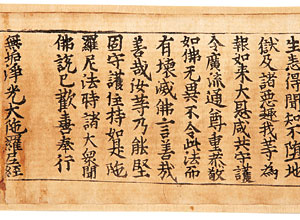 生悉得聞知不墮地
獄及諸惡趣我等為
報如來大恩咸共守護
令廣流通尊重恭敬
如佛無異不令此法而
有壞滅佛言善哉
善哉汝等乃能堅
固守護住持如是陁
羅尼法時諸大衆聞
佛說已歡喜奉行
無垢淨光大陁羅尼経